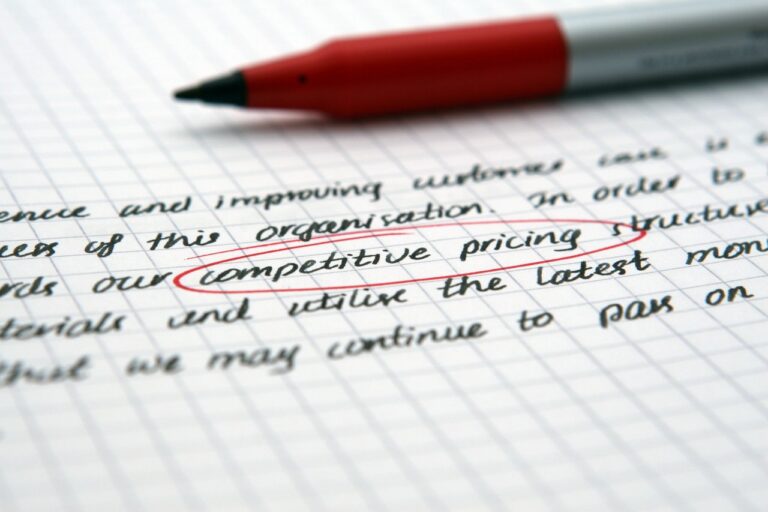 ence and improving customer care is
uers of this organisation. In order to
rds our competitive pricing structure
terials and utilise the latest mon
that we may continue to pass on